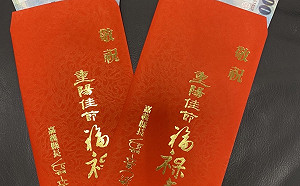 敬祝
重陽佳節
福祿
嘉義縣長
敬祝
重陽佳節
福祿
嘉義縣長